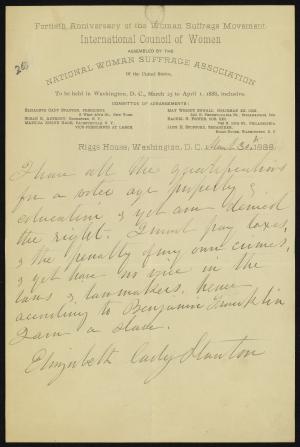 Fortieth Anniversary of the Woman Suffrage Movement.
International Council of Women
ASSEMBLED BY THE
NATIONAL WOMAN SUFFRAGE ASSOCIATION
Of the United States,
To be held in Washington, D. C., March 25 to April 1, 1888, inclusive.
COMMITTEE OF ARRANGEMENTS:
ELIZABETH CADY STANTON, PRESIDENT,
New York
SUSAN B. ANTHONY, ROCHESTER, N. Y.
MATILDA JOSLYN GAGE, FAYETTEVILLE, N. Y.
VICE-PRESIDENTS AT LARGE
MAY WRIGHT SEWALL, CHAIRMAN EX. COM.
RACHEL G. FOSTER, COR. SEC.
JANE H. SPOFFORD, TREASURER,
RIGGS HOUSE, WASHINGTON, D. C.
Riggs House, Washington, D. C. 1888
I have all the qualifications
for a voter age property &
education & yet am denied
the right. I must pay taxes,
& the penalty of my own crimes,
& yet have no voice in the
laws & lawmakers, hence
according to Benjamin Franklin
I am a slave.
Elizabeth Cady Stanton